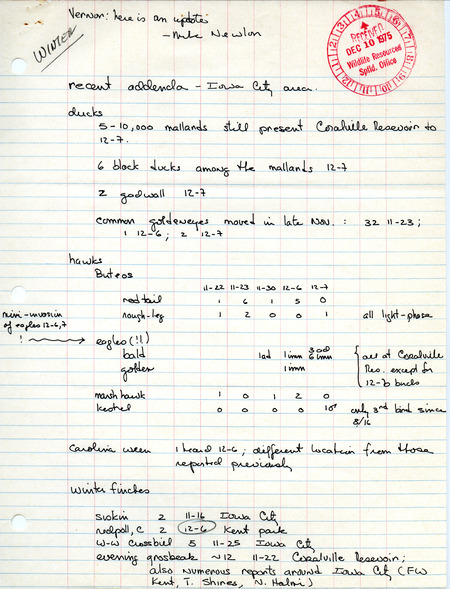 Vernon: here is an update
— Mike Newlon
WINTER
RECEIVED
DEC 10 1975
Wildlife Resources
Spfld. Office
recent addenda – Iowa City area.
ducks
5–10,000 mallards still present Coralville Reservoir to
12-7.
6 black ducks among the mallards 12-7
2 gadwall 12-7
common goldeneyes moved in late Nov. : 32 11-23;
1 12-6; 2 12-7
hawks
Buteos
11-22 11-23 11-30 12-6 12-7
redtail 1 6 1 5 0
rough-leg 1 2 0 0 1 all light-phase
mini-invasion
of eagles 12-6,7
!
eagles (!!)
bald 1ad 1imm 3ad 6imm
golden 1imm
all at Coralville
Res. except for
12-6 birds
marsh hawk 1 0 1 2 0
kestrel 0 0 0 0 1♂ only 3rd bird since
8/16
Carolina wren 1 heard 12-6; different location from those
reported previously
winter finches
siskin 2 11-16 Iowa City
redpoll, C 2 12-6 Kent park
W-W crossbill 5 11-25 Iowa City
evening grosbeak ~12 11-22 Coralville Reservoir;
also numerous reports around Iowa City (FW
Kent, T. Shires, N. Halmi)